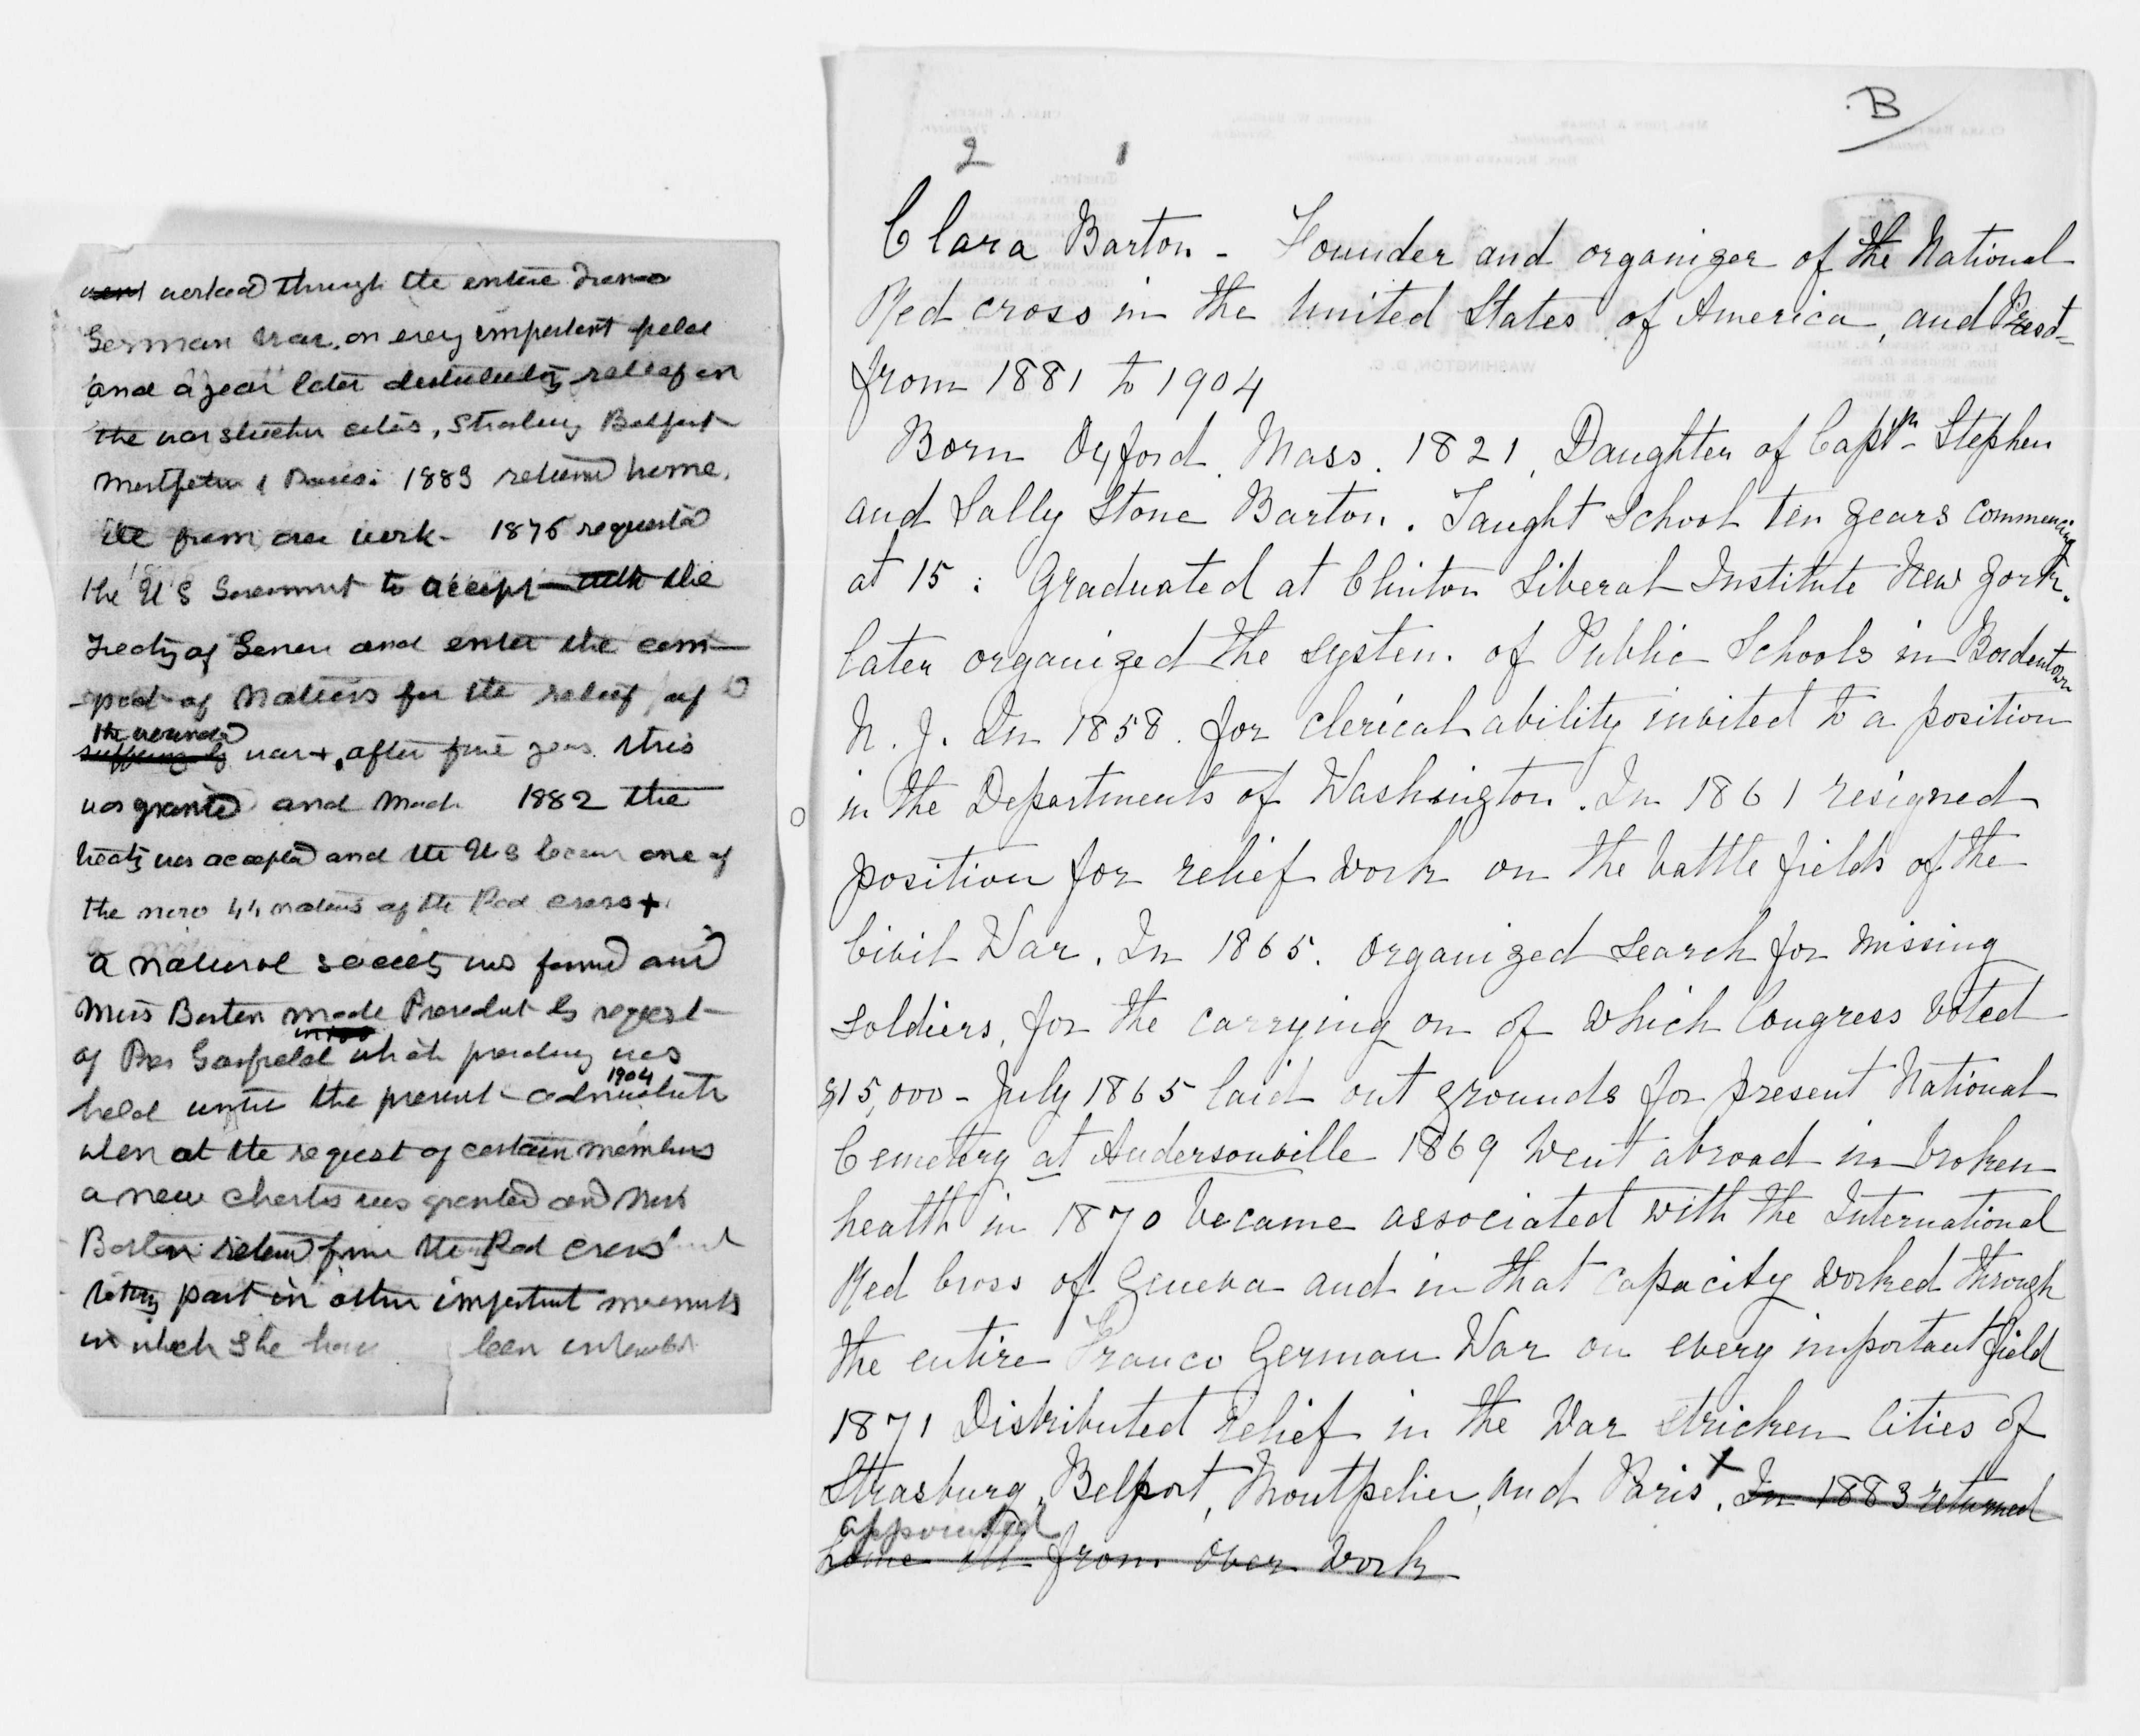 worked through the entire Franco
German War, on every important field
and a year later distributing relief in
the war stricken cities, Strasburg Belfort
Montpelier & Paris. 1883 returned home,
ill from over work - 1876 requested
the U S Government to accept with the
Treaty of Geneva and enter the com-
pact of Nations for the relief of
the wounded
suffering by war +, after five years this
was granted and March 1882 the
treaty was accepted and the U S became one of
the now 44 nations of the Red Cross +
a national society was formed and
Miss Barton made President by request
of Pres Garfield which was
1904
held until the present
when at the request of certain members
a new charter was granted and Miss
Barton from the Red Cross
taking part in other important movements
in which she has been interested
B
2 1
Clara Barton - Founder and organizer of the National
Red cross in the United States of America, and Prest
from 1881 to 1904
Born Oxford, Mass. 1821, Daughter of Captn Stephen
and Sally Stone Barton. Taught School ten years commencing
at 15: Graduated at Clinton Liberal Institute New York.
later organized the system of Public Schools in Bordentown
N. J. In 1858. for clerical ability invited to a position
in the Departments of Washington. In 1861 resigned
position for relief work on the battle fields of the
Civil War. In 1865. organized search for missing
soldiers, for the carrying on of which Congress voted
$15,000 - July 1865 laid out grounds for present National
Cemetery at Andersonville 1869 went abroad in broken
health in 1870 became associated with the International
Red Cross of Geneva and in that capacity worked through
the entire Franco German War on every important field
1871 Distributed relief in the War stricken Cities of
Strasburg, Belfort, Montpelier, and Paris x. In 1883 returned
appointed
home ill from over work